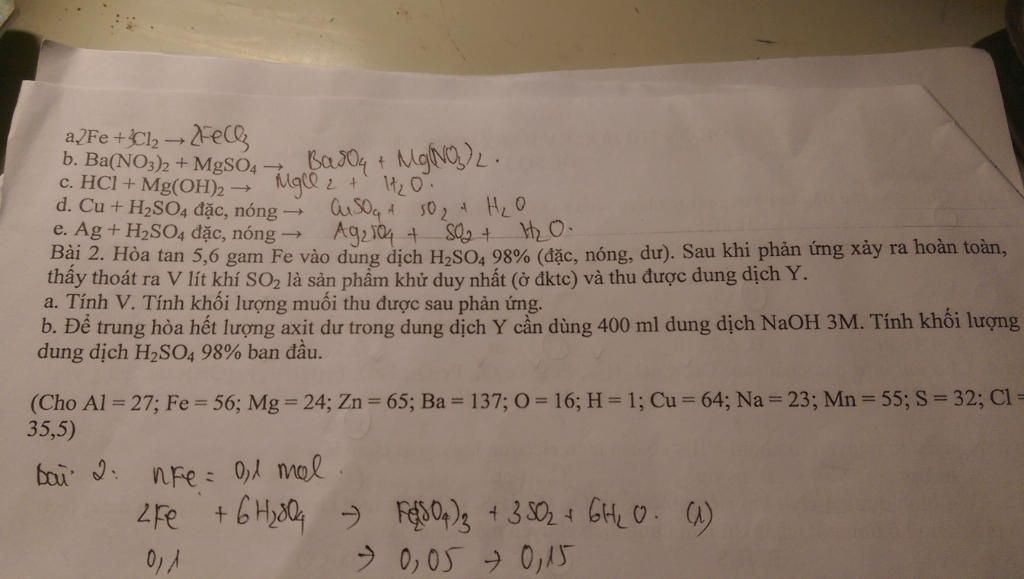 a. 2Fe + 3Cl2 → 2FeCl3
b. Ba(NO3)2 + MgSO4 → BaSO4 + Mg(NO3)2.
c. HCl + Mg(OH)2 → MgCl2 + H2O.
d. Cu + H2SO4 đặc, nóng → CuSO4 + SO2 + H2O
e. Ag + H2SO4 đặc, nóng → Ag2SO4 + SO2 + H2O.
Bài 2. Hòa tan 5,6 gam Fe vào dung dịch H2SO4 98% (đặc, nóng, dư). Sau khi phản ứng xảy ra hoàn toàn,
thấy thoát ra V lít khí SO2 là sản phẩm khử duy nhất (ở đktc) và thu được dung dịch Y.
a. Tính V. Tính khối lượng muối thu được sau phản ứng.
b. Để trung hòa hết lượng axit dư trong dung dịch Y cần dùng 400 ml dung dịch NaOH 3M. Tính khối lượng
dung dịch H2SO4 98% ban đầu.
(Cho Al = 27; Fe = 56; Mg = 24; Zn = 65; Ba = 137; O = 16; H = 1; Cu = 64; Na = 23; Mn = 55; S = 32; Cl =
35,5)
bài 2: nFe = 0,1 mol.
2Fe + 6H2SO4 → Fe2(SO4)3 + 3SO2 + 6H2O. (1)
0,1 → 0,05 → 0,15